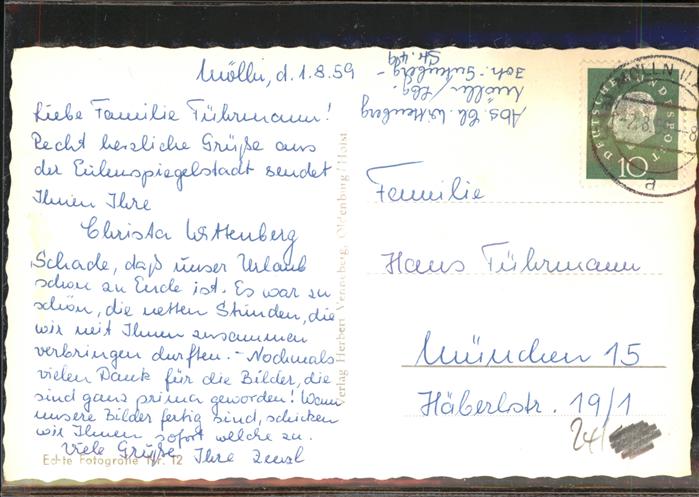 Mölln, d. 1.8.59
Liebe Familie Führmann!
Recht herzliche Grüße aus
der Eulenspiegelstadt sendet
Ihnen Ihre
Christa Wittenberg
Schade, daß unser Urlaub
schon zu Ende ist. Es war zu
schön, die netten Stunden, die
wir mit Ihnen zusammen
verbringen durften. - Nochmals
vielen Dank für die Bilder, die
sind ganz prima geworden! Wenn
unsere Bilder fertig sind, schicken
wir Ihnen sofort welche zu.
Viele Grüße Ihre
Echte Fotografie Nr. 12
Verlag Herbert Oldenburg / Holst
Abs. Ch. Wittenberg
Mölln / Lbg.
Joh.-Gutenberg-
Str.
DEUTSCHE BUNDESPOST
10
MÖLLN
a
Familie
Hans Führmann
München 15
Häberlstr. 19/1
24/